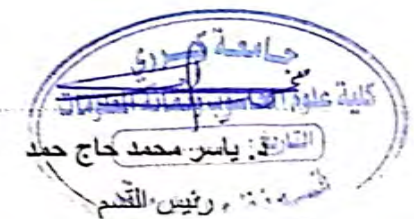 جامعة كرري
كلية علوم الحاسوب وتقانة المعلومات
التاريخ
د. ياسر محمد حاج حمد
رئيس القسم